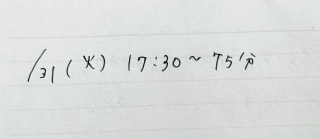 /31(火) 17:30~75分